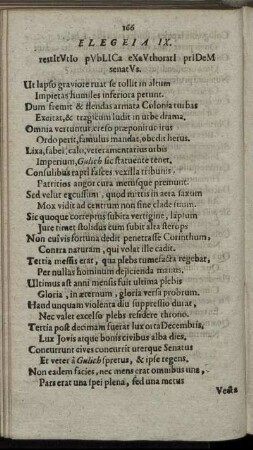 166
ELEGEIA IX.
restItVtIo pVbLICa eXaVthoratI prIDeM
senatVs.
Ut lapso graviore ruat se tollit in altum
Impietas humiles inferiora petunt.
Dum fremit & flendas armata Colonia turbas
Excitat, & tragicum ludit in urbe drama.
Omnia vertuntur, creso præponitur irus
Ordo perit, famulus mandat, obedit herus.
Lixa, faber, calo, veteramentarius urbis
Imperium, Gulich sic statuente tenet.
Consulibus rapti fasces vexilla tribunis
Patritios angor cura metusque premunt.
Sed velut egcussum, quod mittis in æra saxum
Mox vidit ad centrum non sine clade suum.
Sic quoque correptus subita vertigine, lapsum
Jure timet stolidus eum subit alta sterops
Non cuivis fortuna dedit penetrasse Corinthum,
Contra naturam, qui velat ille cadit.
Tertia messis erat, qua plebs tumefacta regebat,
Per nullas hominum dejicienda minas.
Ultimus ast anni mensis fuit ultima plebis
Gloria, in æternum, gloria versa probrum.
Haud unquam violenta diu suppressio durat,
Nec valet excelso plebs residere throno.
Tertia post decimam fuerat lux orta Decembris,
Lux Jovis atque bonis civibus alba dies.
Concurrunt cives concurrit uterque Senatus
Et veter à Gulich spretus, & ipse regens.
Non eadem facies, nec mens erat omnibus una,
Pars erat una spei plena, sed una metus
Vesta